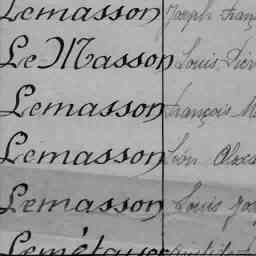 Lemasson Joseph Franç
Le Masson Louis Pier
Lemasson François M
Lemasson Léon Alexa
Lemasson Louis Jos
Lemétayer